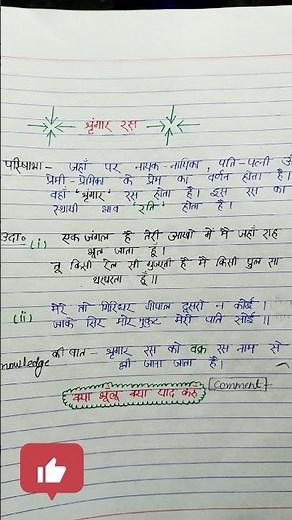 श्रृंगार रस
परिभाषा - जहाँ पर नायक-नायिका, पति-पत्नी
प्रेमी-प्रेमिका के प्रेम का वर्णन होता है।
वहाँ 'श्रृंगार' रस होता है। इस रस का
स्थायी भाव 'रति' होता है।
उदा० (i) एक जंगल है तेरी आखों में मैं जहां राह
भूल जाता हूँ।
तू किसी रेल सी गुजरती है मै किसी पुल सा
थरथराता हूँ॥
(ii) मेरे तो गिरिधर गोपाल दूसरो न कोई।
जाके सिर मोर मुकुट मेरो पति सोई॥
knowledge की बात - श्रृंगार रस को वक्र रस नाम से
भी जाना जाता है।
क्या भूलूं क्या याद करूं [comment]